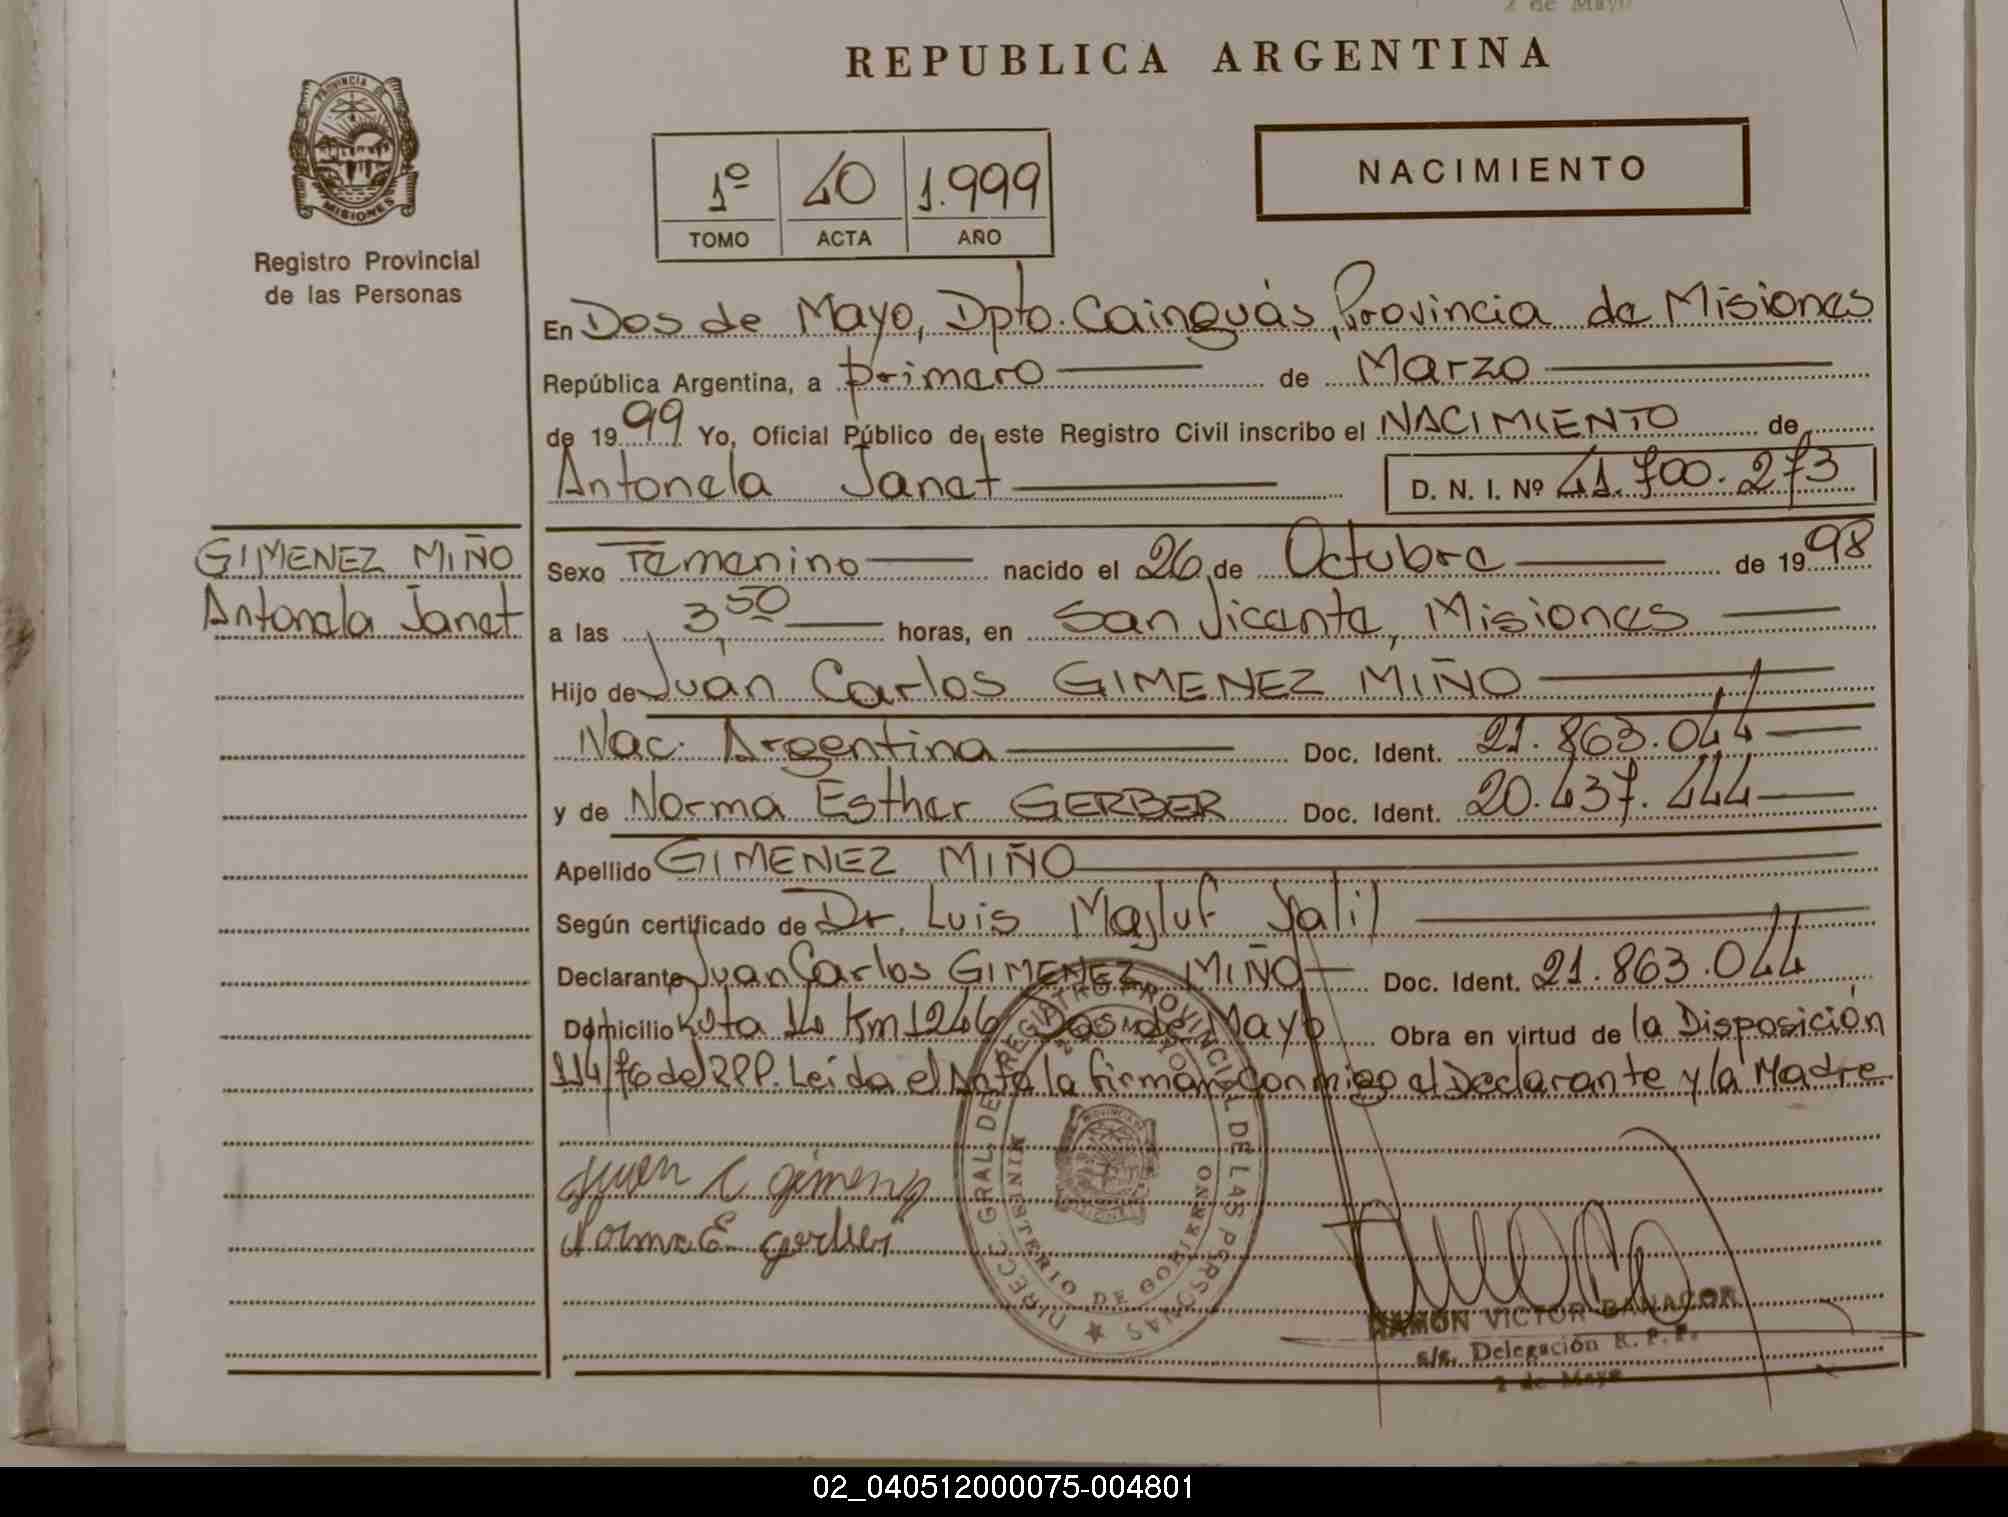 2 de Mayo
REPUBLICA ARGENTINA
PROVINCIA DE
MISIONES
Registro Provincial
de las Personas
1º 40 1.999
TOMO ACTA AÑO
NACIMIENTO
En Dos de Mayo, Dpto. Cainguás, Provincia de Misiones
República Argentina, a primero de Marzo
de 1999 Yo, Oficial Público de este Registro Civil inscribo el NACIMIENTO de
Antonela Janet D. N. I. Nº 41.700.273
GIMENEZ MIÑO
Antonela Janet
Sexo Femenino nacido el 26 de Octubre de 1998
a las 3,50 horas, en San Vicente, Misiones
Hijo de Juan Carlos GIMENEZ MIÑO
Nac. Argentina Doc. Ident. 21.863.044
y de Norma Esther GERBER Doc. Ident. 20.437.444
Apellido GIMENEZ MIÑO
Según certificado de Dr. Luis Majluf Jalil
Declarante Juan Carlos GIMENEZ MIÑO Doc. Ident. 21.863.044
Domicilio Ruta 14 Km 1246 Dos de Mayo Obra en virtud de la Disposición
114/76 del RPP. Leida el Acta la firman conmigo el Declarante y la Madre
Juan C Gimenez
Norma E. Gerber
DIRECC. GRAL. DE REGISTRO PROVINCIAL DE LAS PERSONAS
MINISTERIO DE GOBIERNO
PROVINCIA DE
RAMON VICTOR
s/s. Delegación R. P. P.
2 de Mayo
02_040512000075-004801